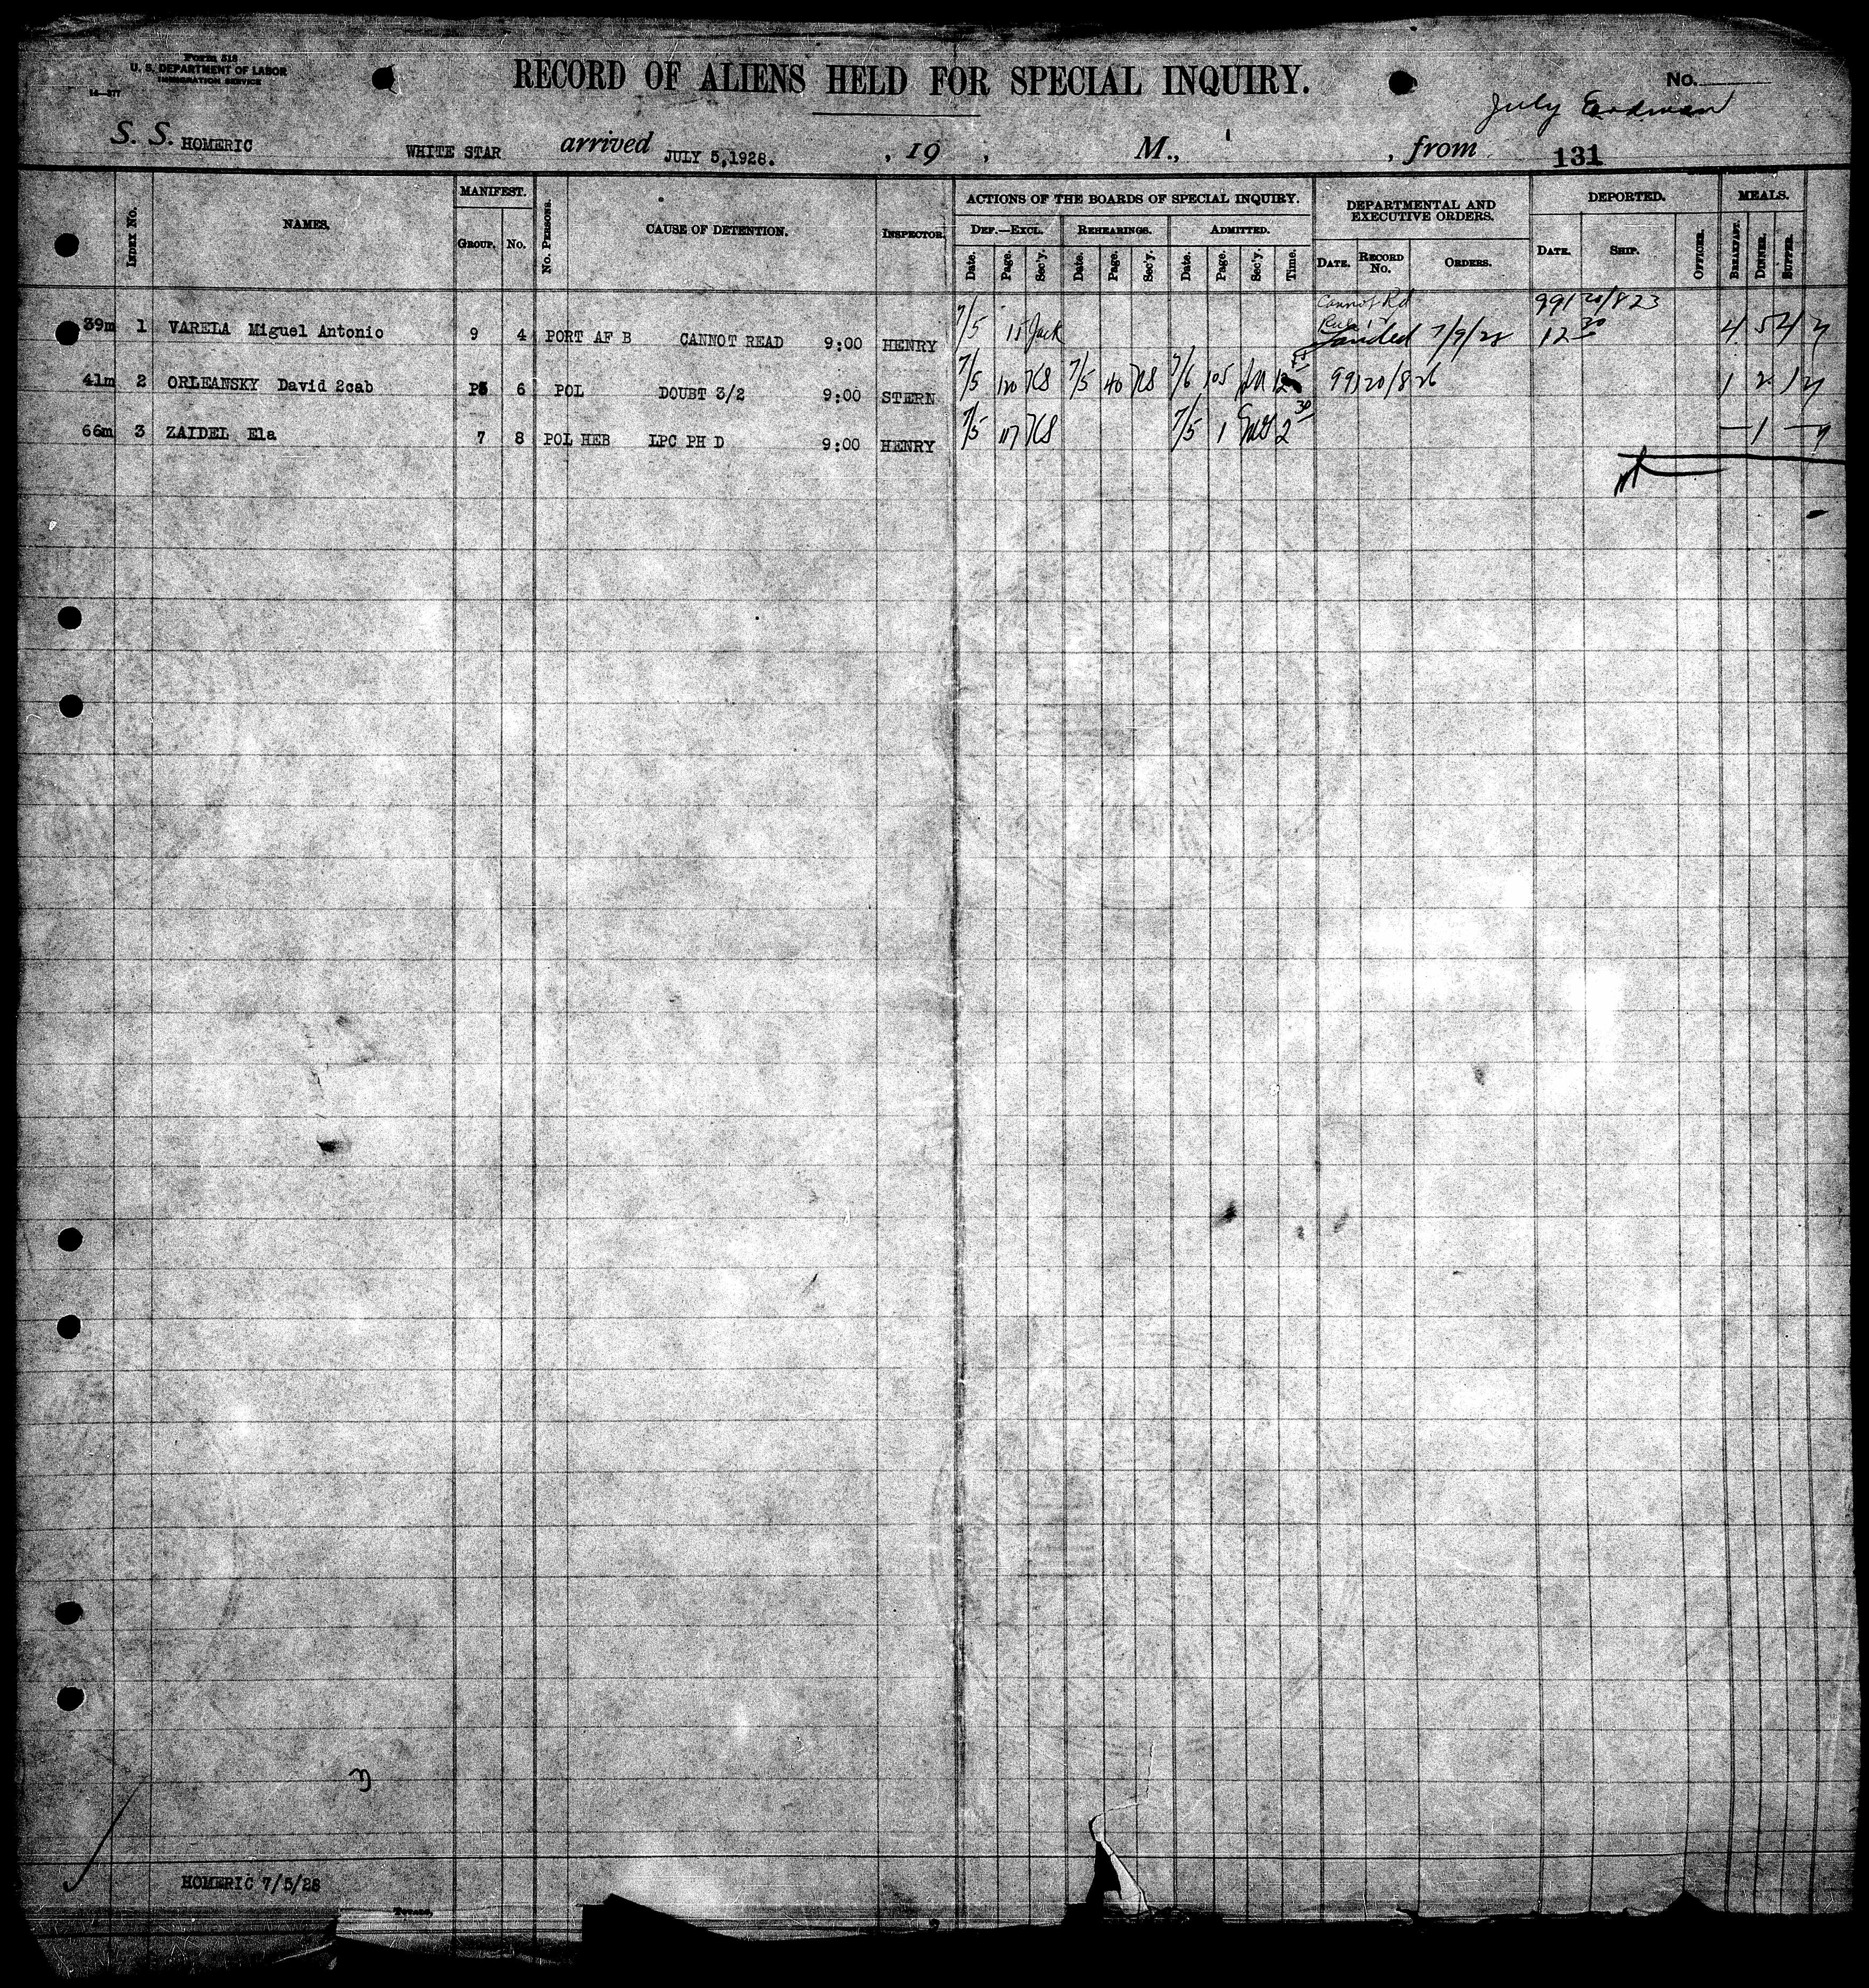 Form 518
U. S. DEPARTMENT OF LABOR
IMMIGRATION SERVICE
14—577
RECORD OF ALIENS HELD FOR SPECIAL INQUIRY.
No.
July
S. S. HOMERIC WHITE STAR arrived JULY 5,1928. , 19 , M., , from 131
INDEX No. NAMES. MANIFEST. No. PERSONS. CAUSE OF DETENTION. INSPECTOR. ACTIONS OF THE BOARDS OF SPECIAL INQUIRY. DEPARTMENTAL AND EXECUTIVE ORDERS. DEPORTED. MEALS.
GROUP. No. DEF.—EXCL. REHEARINGS. ADMITTED.
Date. Page. Sec'y. Date. Page. Sec'y. Date. Page. Sec'y. Time. DATE. RECORD No. ORDERS. DATE. SHIP. OFFICER. BREAKFAST. DINNER. SUPPER.
Cannot Rd 99120/823
39m 1 VARELA Miguel Antonio 9 4 PORT AF B CANNOT READ 9:00 HENRY 7/5 15 Jack Landed 7/9/28 12 30 4 5 4
41m 2 ORLEANSKY David 2cab 6 POL DOUBT 3/2 9:00 STERN 7/5 120 KS 7/5 40 KS 7/6 105 12 99120/826 1 2 1
66m 3 ZAIDEL Ela 7 8 POL HEB LPC PH D 9:00 HENRY 7/5 117 KS 7/5 1 2 30 — 1 —
HOMERIC 7/5/28